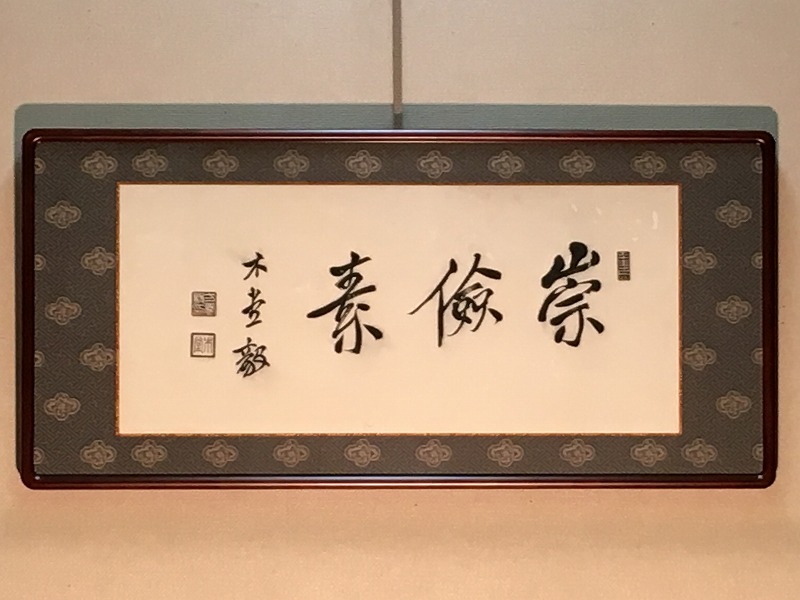 崇儉素
木堂毅